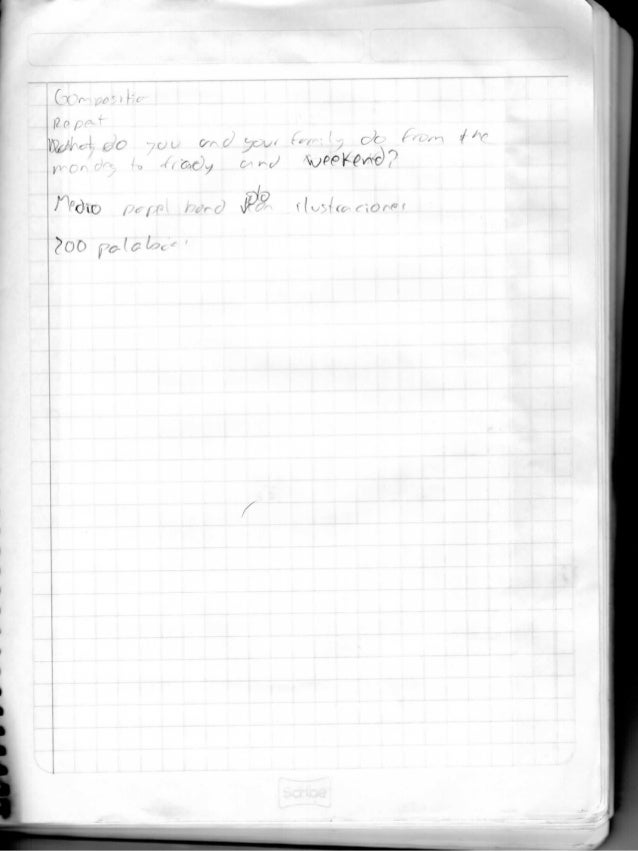 Compositio
Repat
What do you and your family do from the
monday to friady and weekend?
Medio papel bond ilustraciones
200 palabras
Scribe